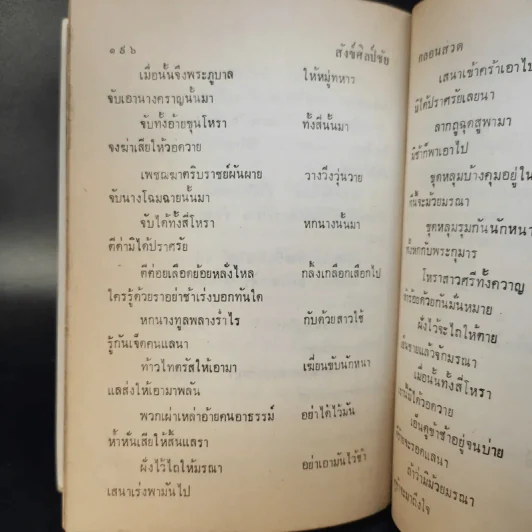 ๑๙๖ สังข์ศิลป์ชัย
เมื่อนั้นจึงพระภูบาล ให้หมู่ทหาร
จับเอานางคราญนั้นมา
จับทั้งอ้ายขุนโหรา ทั้งสี่นั้นมา
จงฆ่าเสียให้วอดวาย
เพชฌฆาตริบราชย์ผันผาย วางวิ่งวุ่นวาย
จับนางโฉมฉายนั้นมา
จับได้ทั้งสี่โหรา หกนางนั้นมา
ตีด่ามิได้ปราศรัย
ตีต่อยเลือดย้อยหลั่งไหล กลิ้งเกลือกเสือกไป
ใครรู้ด้วยราอย่าช้าเร่งบอกทันใด
หกนางทูลพลางร่ำไร กับด้วยสาวใช้
รู้กันเจ็ดคนแลนา
ท้าวไทตรัสให้เอามา เฆี่ยนขับนักหนา
แลส่งให้เอามาพลัน
พวกเผ่าเหล่าอ้ายคนอาธรรม์ อย่าได้ไว้มัน
ห้ำหั่นเสียให้สิ้นแลรา
ฝั่งไว้ไถให้มรณา อย่าเอามันไว้ช้า
เสนาเร่งพามันไป
กลอนสวด
เสนาเข้าคร่าเอาไป
มิได้ปราศรัยเลยนา
ลากถูฉุดสูพามา
มิช้าก็พาเอาไป
ขุดหลุมบ้างคุมอยู่ใน
ขุดหลุมรุมกันนักหนา
ทั้งหกกับพระกุมาร
โหราสาวศรีทั้งควาญ
ทำร้อยด้วยกันมั่นหมาย
ฝั่งไว้จะไถให้ตาย
เมื่อนั้นทั้งสี่โหรา
เย็นดูข้าช้าอยู่จนบ่าย
ถ้าว่ามิม้วยมรณา